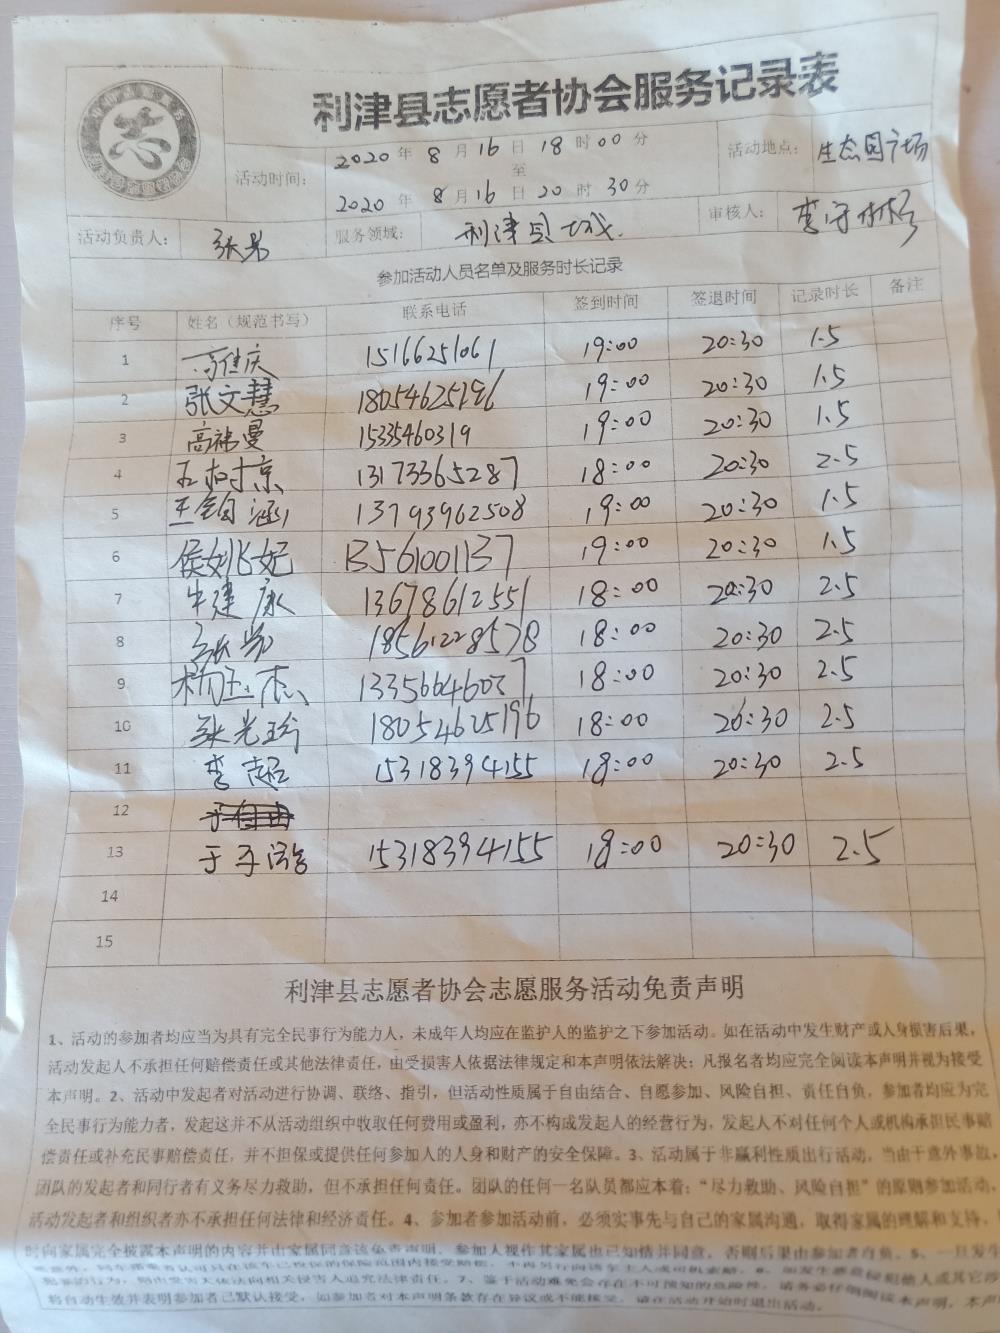 利津县志愿者协会服务记录表
志
活动时间: 2020年8月16日18时00分
至
2020年8月16日20时30分
活动地点: 生态园广场
活动负责人: 张芳 服务领域: 利津县城. 审核人: 李守
参加活动人员名单及服务时长记录
序号 姓名（规范书写） 联系电话 签到时间 签退时间 记录时长 备注
1 高佳庆 15166251061 19:00 20:30 1.5
2 张文慧 18054625196 19:00 20:30 1.5
3 高 曼 15335460319 19:00 20:30 1.5
4 京 13173365287 18:00 20:30 2.5
5 王 涵 13793962508 19:00 20:30 1.5
6 侯 妃 13561001137 19:00 20:30 1.5
7 牛建康 13678612551 18:00 20:30 2.5
8 张芳 18561228578 18:00 20:30 2.5
9 杨玉杰 13356646027 18:00 20:30 2.5
10 张光玲 18054625196 18:00 20:30 2.5
11 李超 15318394155 18:00 20:30 2.5
12
13 于子涵 15318394155 18:00 20:30 2.5
14
15
利津县志愿者协会志愿服务活动免责声明
1、活动的参加者均应当为具有完全民事行为能力人，未成年人均应在监护人的监护之下参加活动。如在活动中发生财产或人身损害后果，
活动发起人不承担任何赔偿责任或其他法律责任，由受损害人依据法律规定和本声明依法解决；凡报名者均应完全阅读本声明并视为接受
本声明。2、活动中发起者对活动进行协调、联络、指引，但活动性质属于自由结合、自愿参加、风险自担、责任自负，参加者均应为完
全民事行为能力者，发起这并不从活动组织中收取任何费用或盈利，亦不构成发起人的经营行为，发起人不对任何个人或机构承担民事赔
偿责任或补充民事赔偿责任，并不担保或提供任何参加人的人身和财产的安全保障。3、活动属于非赢利性质出行活动，当由于意外事故，
团队的发起者和同行者有义务尽力救助，但不承担任何责任。团队的任何一名队员都应本着：“尽力救助、风险自担”的原则参加活动，
活动发起者和组织者亦不承担任何法律和经济责任。4、参加者参加活动前，必须实事先与自己的家属沟通，取得家属的理解和支持，
时向家属完全披露本声明的内容并由家属同意该免责声明，参加人视作其家属也已知情并同意，否则后果由参加者自负。5、一旦发生
犯罪的行为，则由受害人依法向相关侵害人追究法律责任。7、鉴于活动难免会存在不可预知的危险性，请务必仔细阅读本声明，本声
将自动生效并表明参加者已默认接受，如参加者对本声明条款存在异议或不能接受，请在活动开始时退出活动。